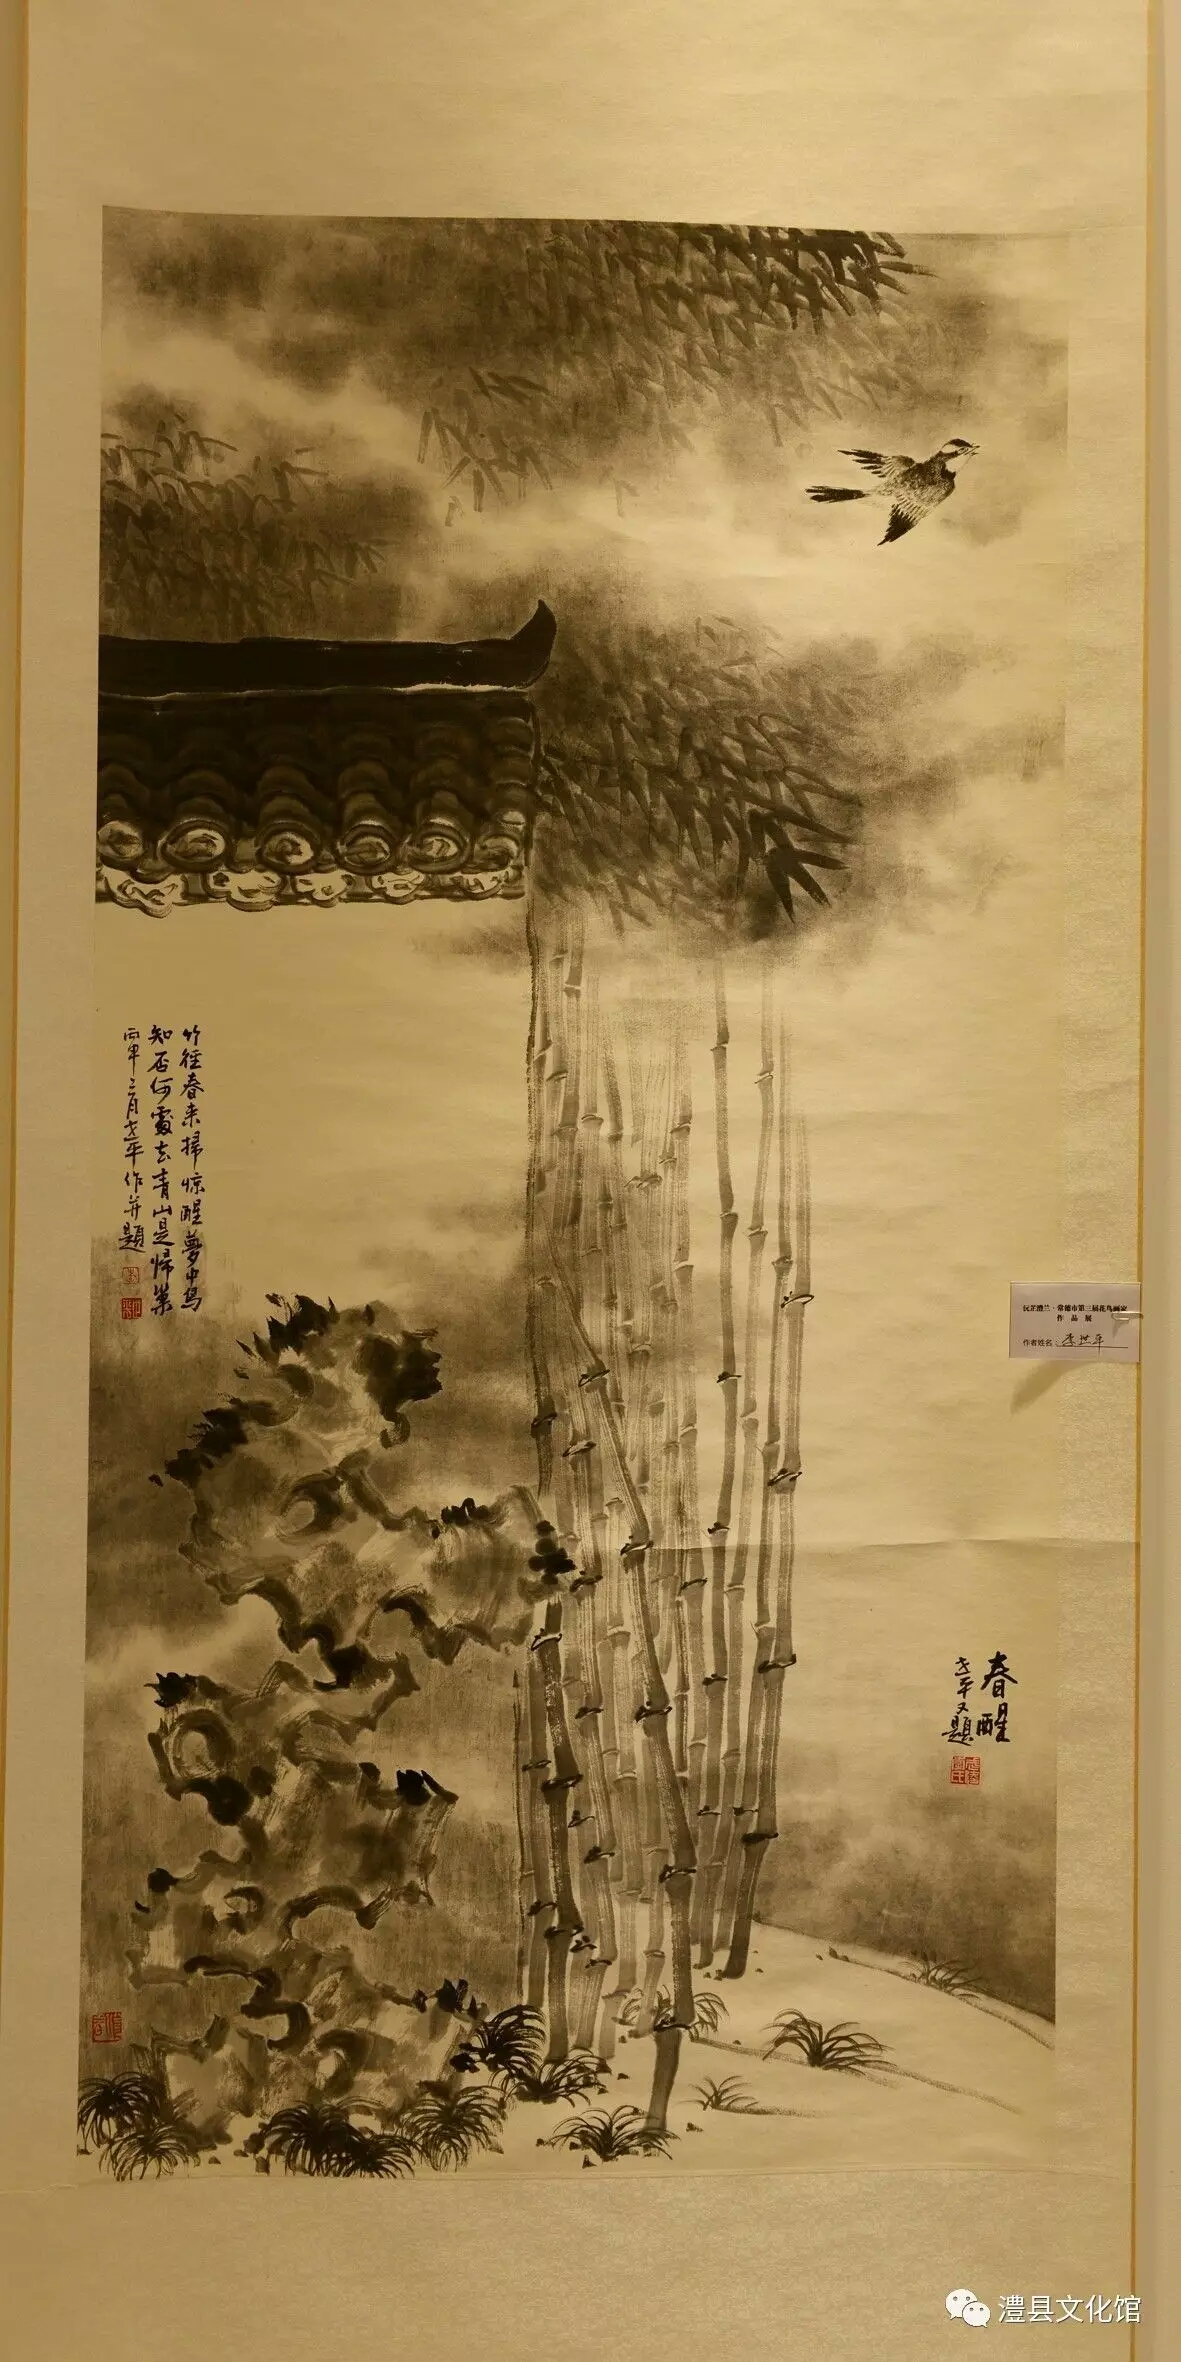 竹径春来掃惊醒夢中鳥
知否何處去青山是歸巢
丙申三月世平作并題
沅芷澧兰·常德市第三届花鸟画家
作品展
作者姓名：李世平
春醒
世平又題
澧县文化馆